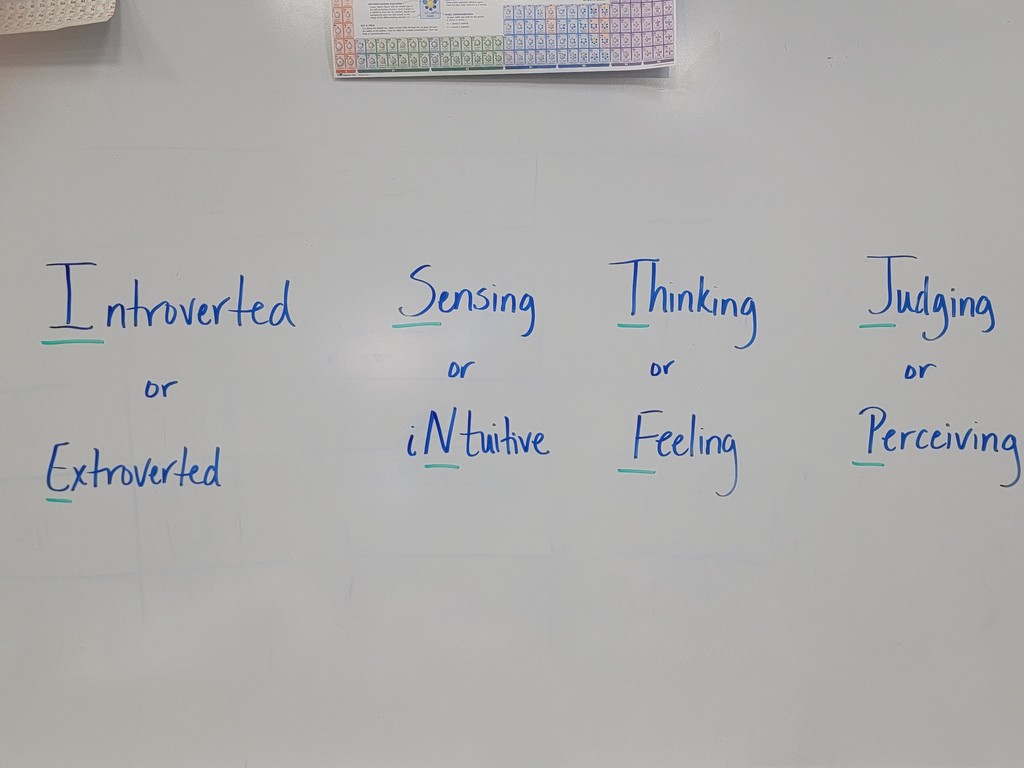 Introverted
or
Extroverted
Sensing
or
iNtuitive
Thinking
or
Feeling
Judging
or
Perceiving